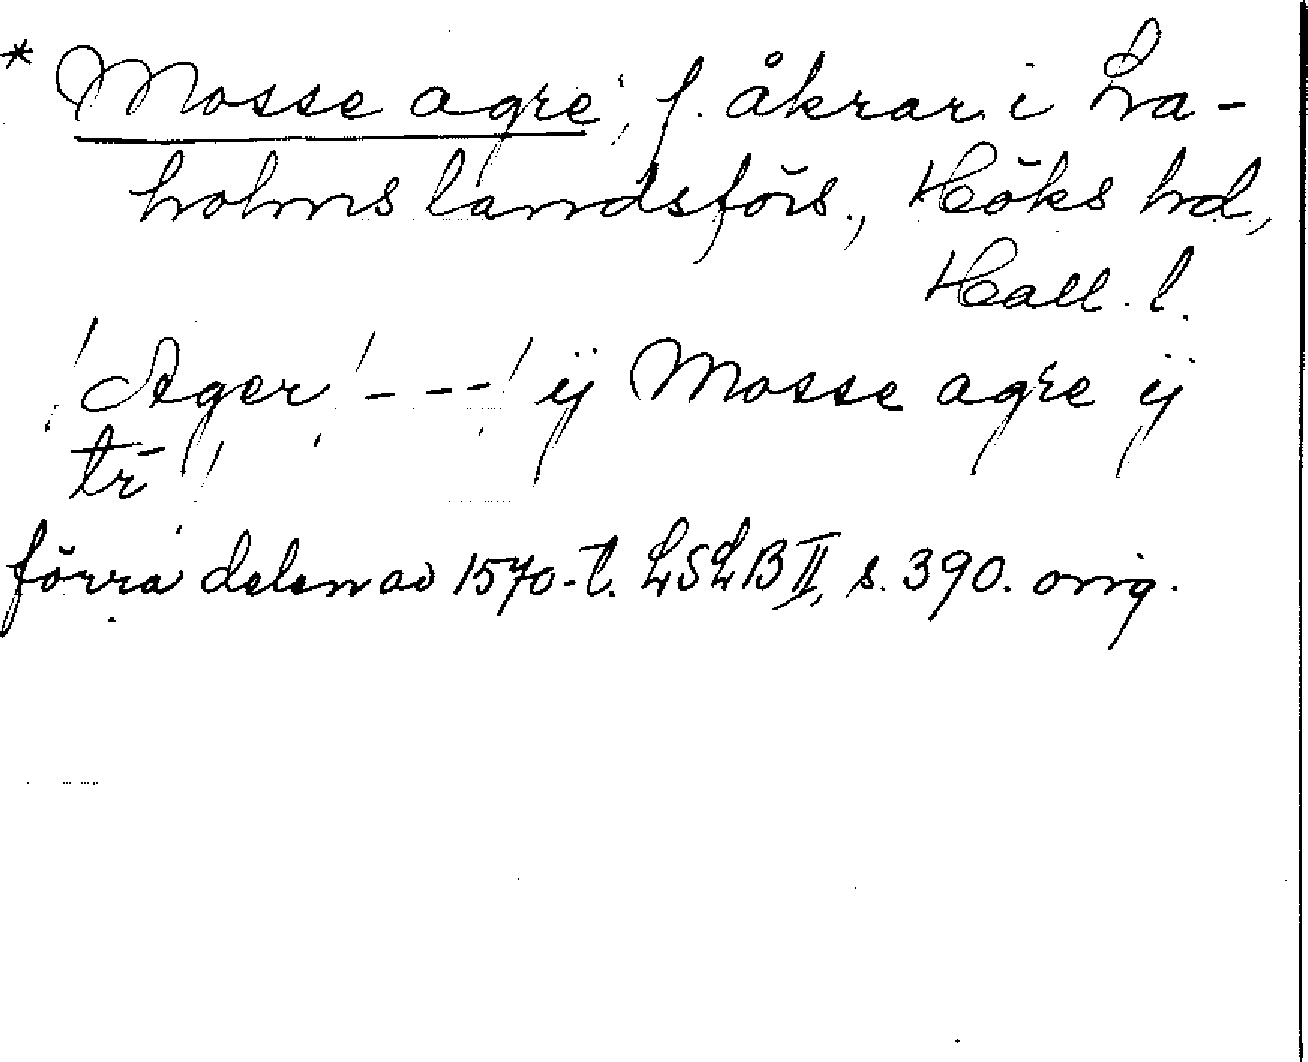 * Mosse agre, f. åkrar i La-
holms landsförs., Höks hd,
Hall. l.
/Ager/---/ ij Mosse agre ij
tr̄/
förra delen av 1570-t. LSLB II, s. 390. orig.